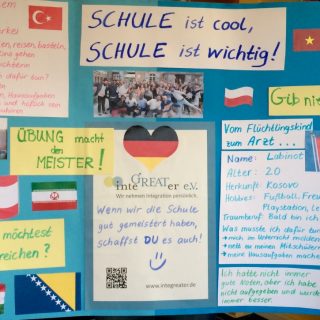 SCHULE ist cool,
SCHULE ist wichtig!
dafür tun?
Hausaufgaben
und höflich
Gib nie
ÜBUNG macht
den
MEISTER!
GREAT
Inte er e.V.
Wir nehmen Integration persönlich.
Wenn wir die Schule
gut gemeistert haben,
schaffst DU es auch!
www.integreater.de
möchtest
reichen?
Vom Flüchtlingskind
zum Arzt...
Name: Labinot
Alter: 20
Herkunft: Kosovo
Hobbies: Fußball, Freu
Playstation, Le
Traumberuf: Bald bin ich
Was musste ich dafür tun
→ mich im Unterricht melden
→ nett zu meinen Mitschülern
→ meine Hausaufgaben machen
Ich hatte nicht immer
gute Noten, aber ich habe
nicht aufgegeben und werde
immer besser.